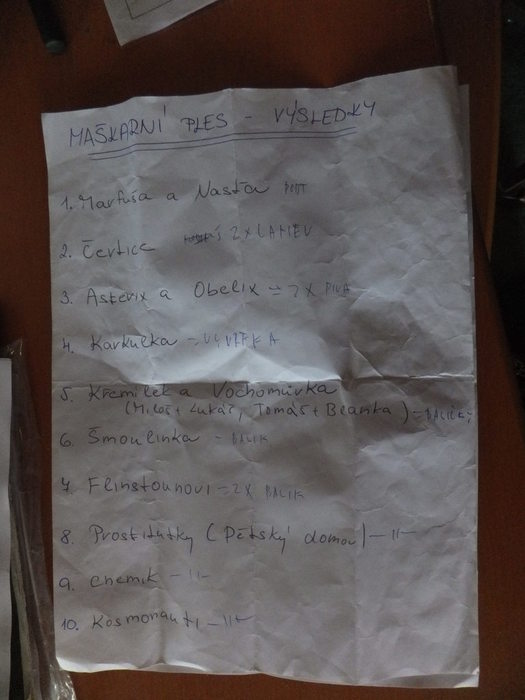 MAŠKARNÍ PLES - VÝSLEDKY
1. Marfuša a Nasťa
2. Čertice 2x LAHEV
3. Asterix a Obelix = 2x PIVA
4. Karkulka -
5. Křemílek a Vochomůrka
(Miloš + Lukáš, Tomáš + Blanka) - BALÍČKY
6. Šmoulinka - BALÍK
7. Flinstounovi - 2x BALÍK
8. Prostitutky (Dětský domov) -11-
9. chemik -11-
10. Kosmonauti -11-